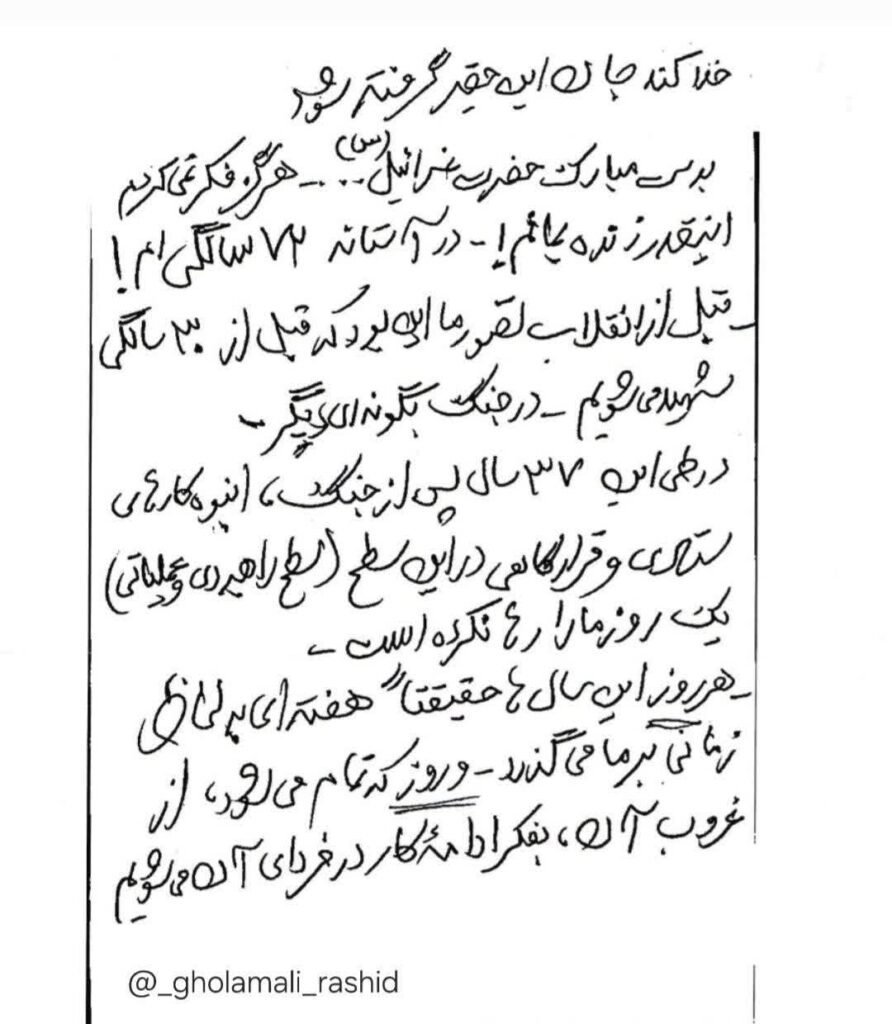 خدا کند جان این حقیر گرفته شود
بدست مبارک حضرت عزرائیل (س)... - هرگز فکر نمی‌کردم
اینقدر زنده بمانم! - در آستانه ۷۲ سالگی ام!
- قبل از انقلاب تصور ما این بود که قبل از ۳۰ سالگی
شهید می‌شویم - در جنگ بگونه‌ای دیگر -
در طی این ۳۷ سال پس از جنگ، انبوه کارهای
ستادی و قرارگاهی در این سطح (سطح راهبردی و عملیاتی)
یک روز ما را رها نکرده است -
- هر روز این سال ها حقیقتاً هفته‌ای به لحاظ
زمانی بر ما می‌گذرد - و روز که تمام می‌شود، از
غروب آن، بفکر ادامهٔ کار در فردای آن می‌شویم
@_gholamali_rashid